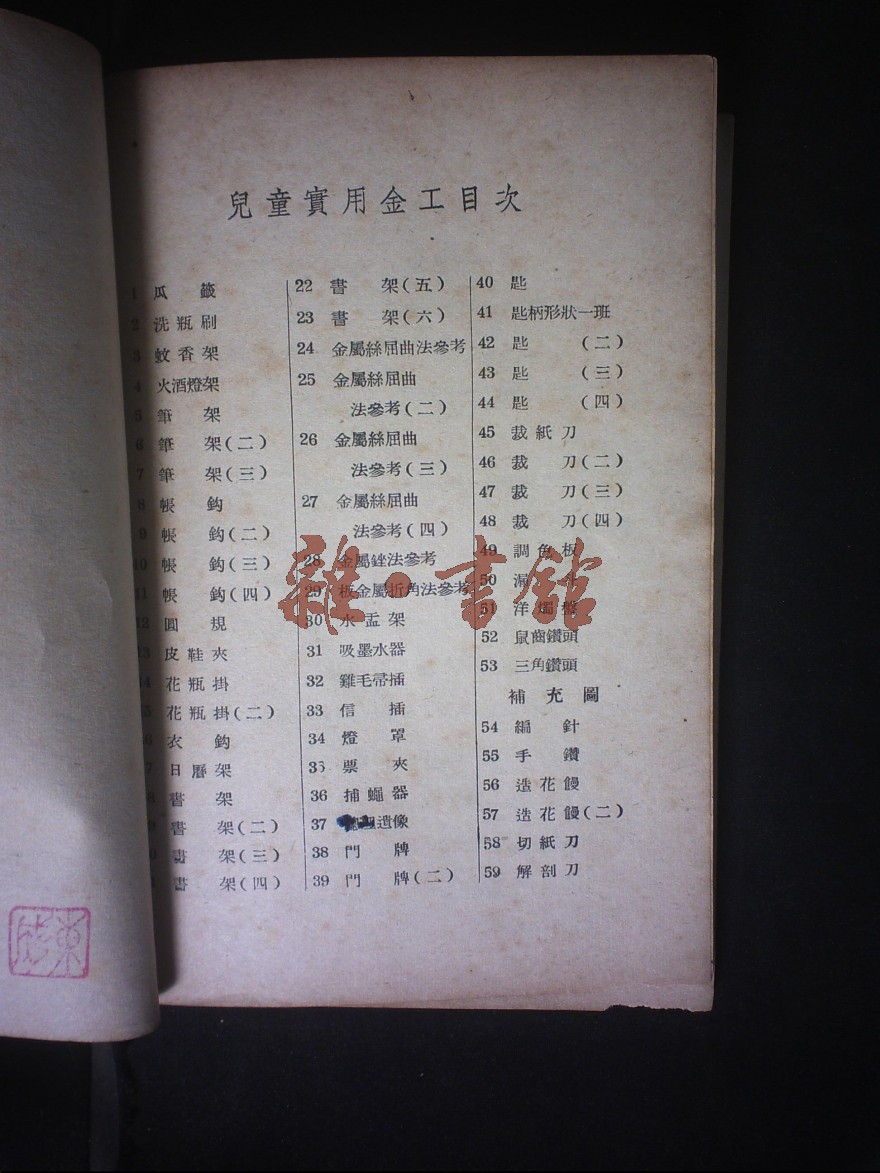 兒童實用金工目次
1 瓜籤
2 洗瓶刷
3 蚊香架
4 火酒燈架
5 筆架
6 筆架(二)
7 筆架(三)
8 帳鈎
9 帳鈎(二)
10 帳鈎(三)
11 帳鈎(四)
12 圓規
13 皮鞋夾
14 花瓶掛
15 花瓶掛(二)
16 衣鈎
17 日曆架
18 書架
19 書架(二)
20 書架(三)
21 書架(四)
22 書架(五)
23 書架(六)
24 金屬絲屈曲法參考
25 金屬絲屈曲
法參考(二)
26 金屬絲屈曲
法參考(三)
27 金屬絲屈曲
法參考(四)
28 金屬銼法參考
29 板金屬折角法參考
30 水盂架
31 吸墨水器
32 雞毛帚插
33 信插
34 燈罩
35 票夾
36 捕蠅器
37 遺像
38 門牌
39 門牌(二)
40 匙
41 匙柄形狀一班
42 匙(二)
43 匙(三)
44 匙(四)
45 裁紙刀
46 裁刀(二)
47 裁刀(三)
48 裁刀(四)
49 調色板
50 漏
51 洋燭盤
52 鼠齒鑽頭
53 三角鑽頭
補充圖
54 編針
55 手鑽
56 造花饅
57 造花饅(二)
58 切紙刀
59 解剖刀
雜·書館